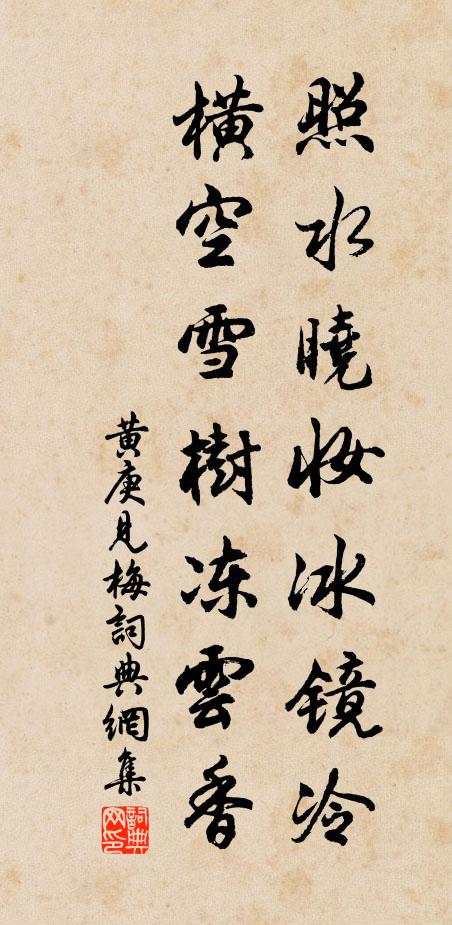 照水曉妝冰镜冷
横空雪樹冻雲香
黄庚見梅詞典網集
詞典网印